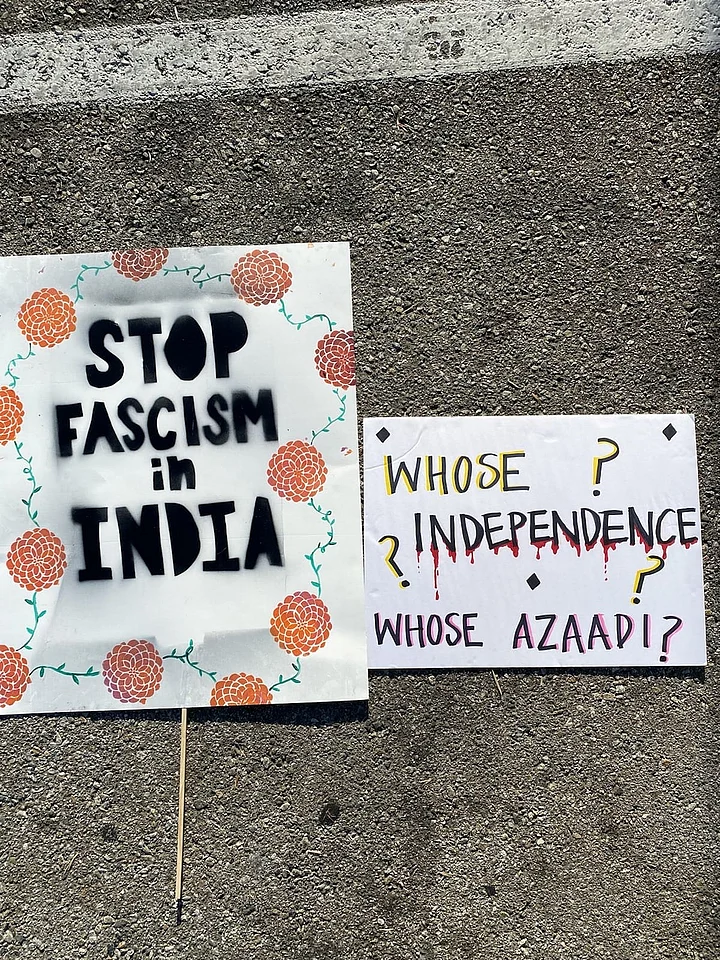 STOP
FASCISM
in
INDIA
WHOSE ?
? INDEPENDENCE
?
WHOSE AZAADI?